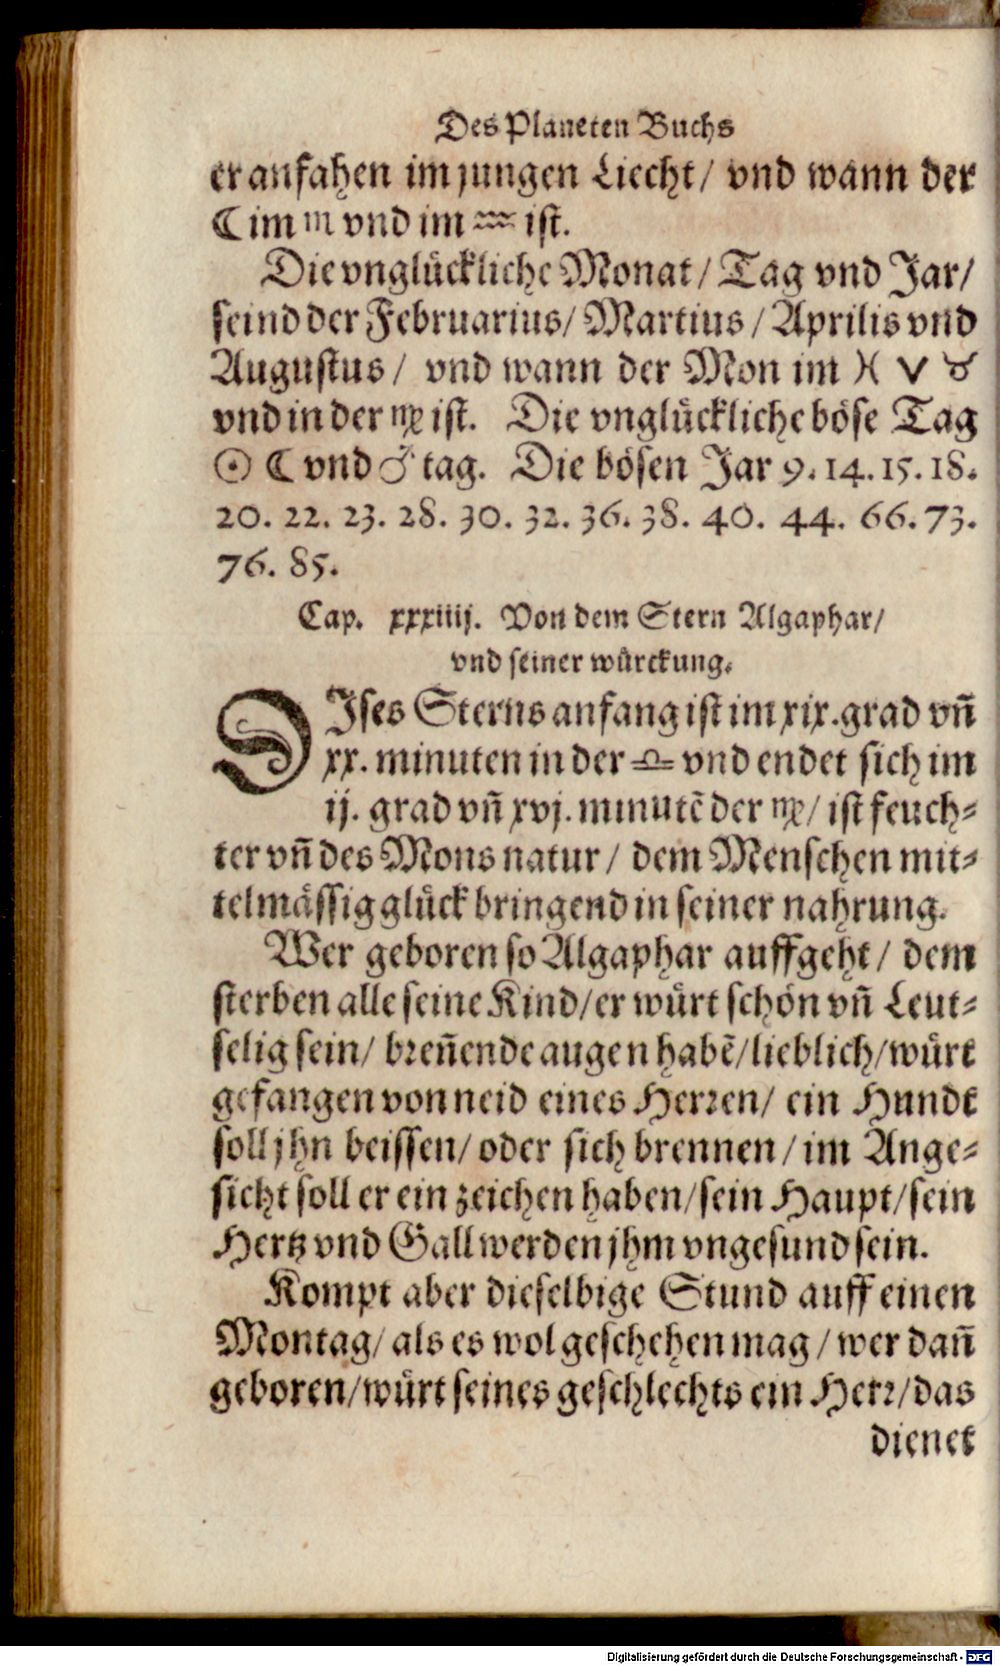 Des Planeten Buchs
er anfahen im jungen Liecht/ vnd wann der
☾ im ♏ vnd im ♒ ist.
Die vnglückliche Monat/ Tag vnd Jar/
seind der Februarius/ Martius/ Aprilis vnd
Augustus/ vnd wann der Mon im ♓ ♈ ♉
vnd in der ♍ ist. Die vnglückliche böse Tag
☉ ☾ vnd ♂ tag. Die bösen Jar 9. 14. 15. 18.
20. 22. 23. 28. 30. 32. 36. 38. 40. 44. 66. 73.
76. 85.
Cap. xxxiiij. Von dem Stern Algaphar/
vnd seiner würckung.
DIses Sterns anfang ist im xix. grad vn̄
xx. minuten in der ♎ vnd endet sich im
ij. grad vn̄ xvj. minutē der ♍/ ist feuch-
ter vn̄ des Mons natur/ dem Menschen mit-
telmässig glück bringend in seiner nahrung.
Wer geboren so Algaphar auffgeht/ dem
sterben alle seine Kind/ er würt schön vn̄ Leut-
selig sein/ bren̄ende augen habē/ lieblich/ würt
gefangen von neid eines Herren/ ein Hundt
soll jhn beissen/ oder sich brennen/ im Ange-
sicht soll er ein zeichen haben/ sein Haupt/ sein
Hertz vnd Gall werden jhm vngesund sein.
Kompt aber dieselbige Stund auff einen
Montag/ als es wol geschehen mag/ wer dan̄
geboren/ würt seines geschlechts ein Herr/ das
dienet
Digitalisierung gefördert durch die Deutsche Forschungsgemeinschaft - DFG